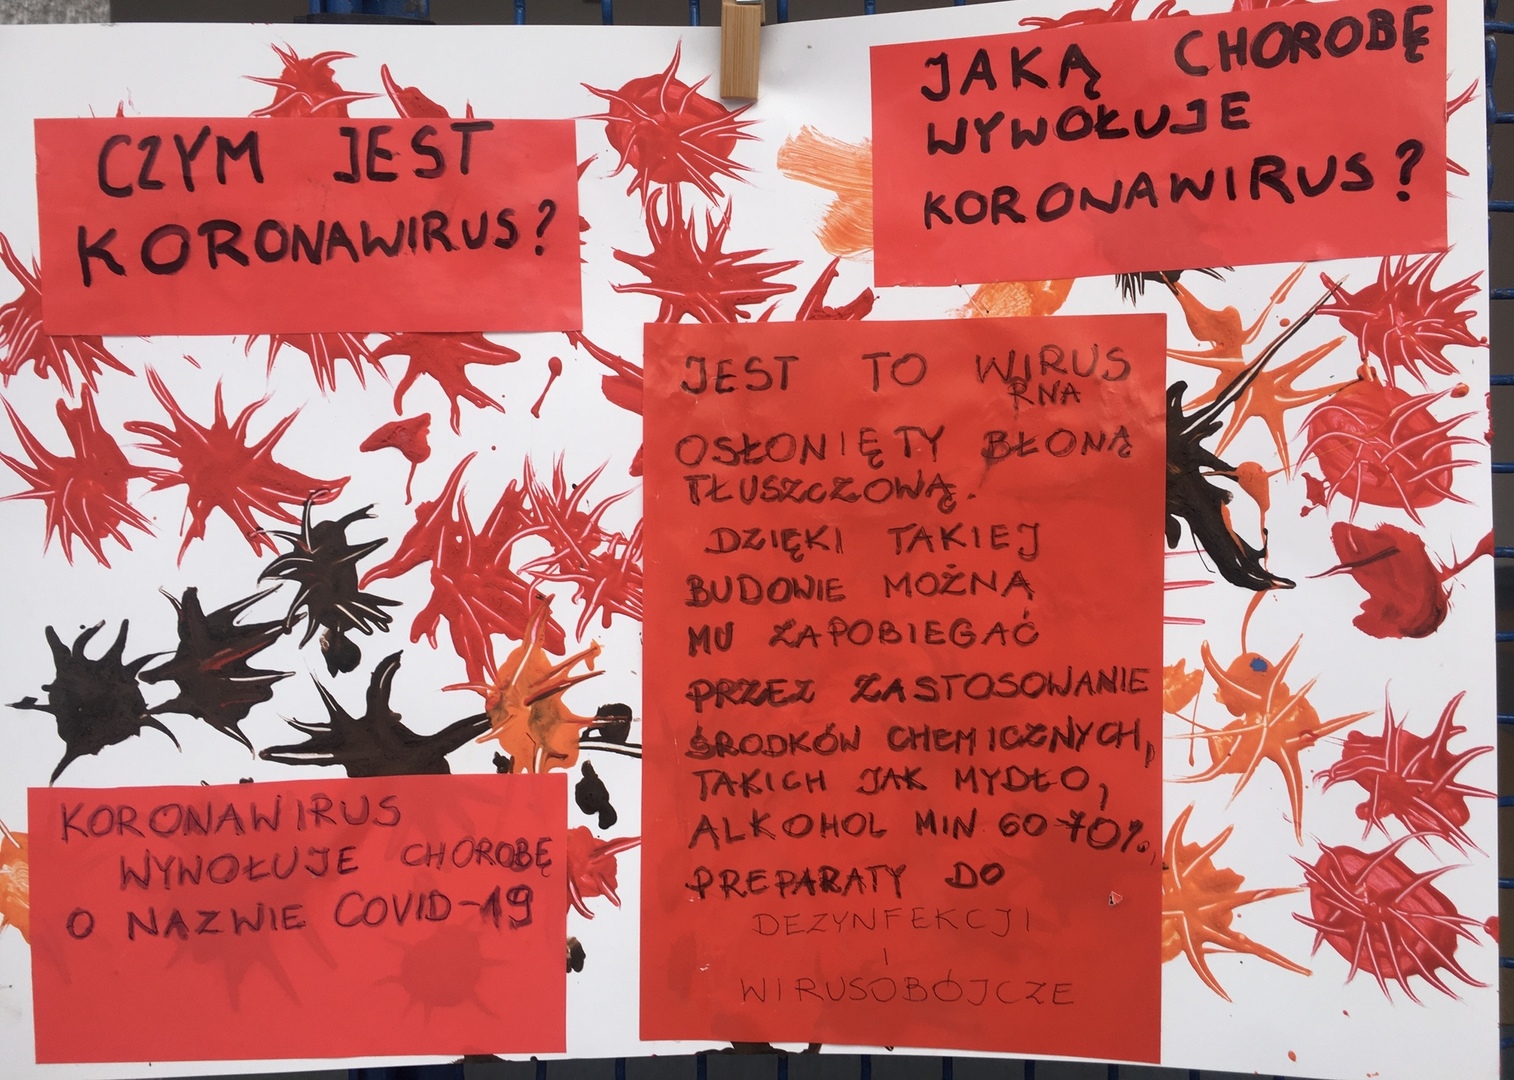 CZYM JEST
KORONAWIRUS?
JAKĄ CHOROBĘ
WYWOŁUJE
KORONAWIRUS?
JEST TO WIRUS
RNA
OSŁONIĘTY BŁONĄ
TŁUSZCZOWĄ.
DZIĘKI TAKIEJ
BUDOWIE MOŻNA
MU ZAPOBIEGAĆ
PRZEZ ZASTOSOWANIE
ŚRODKÓW CHEMICZNYCH,
TAKICH JAK MYDŁO,
ALKOHOL MIN 60-70%,
PREPARATY DO
DEZYNFEKCJI
I
WIRUSOBÓJCZE
KORONAWIRUS
WYWOŁUJE CHOROBĘ
O NAZWIE COVID-19